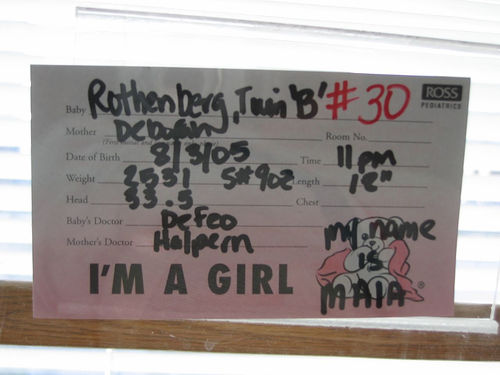 Baby Rothenberg, Twin 'B' #30 ROSS
PEDIATRICS
Mother Deborah Room No.
Date of Birth 8/3/05 Time 11pm
Weight 2531 5#9oz Length 18"
Head 33.5 Chest
Baby's Doctor DeFeo
Mother's Doctor Halpern
my name
is
MAIA
I'M A GIRL